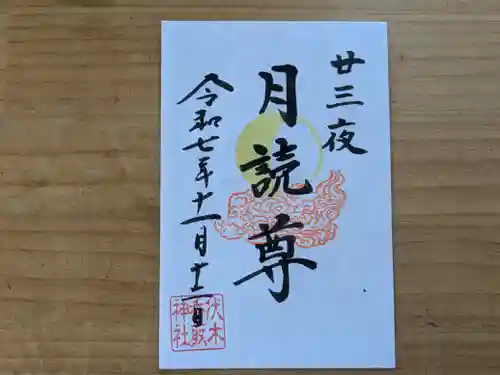 廿三夜
月読尊
令和七年十一月十二日
伏木香取神社